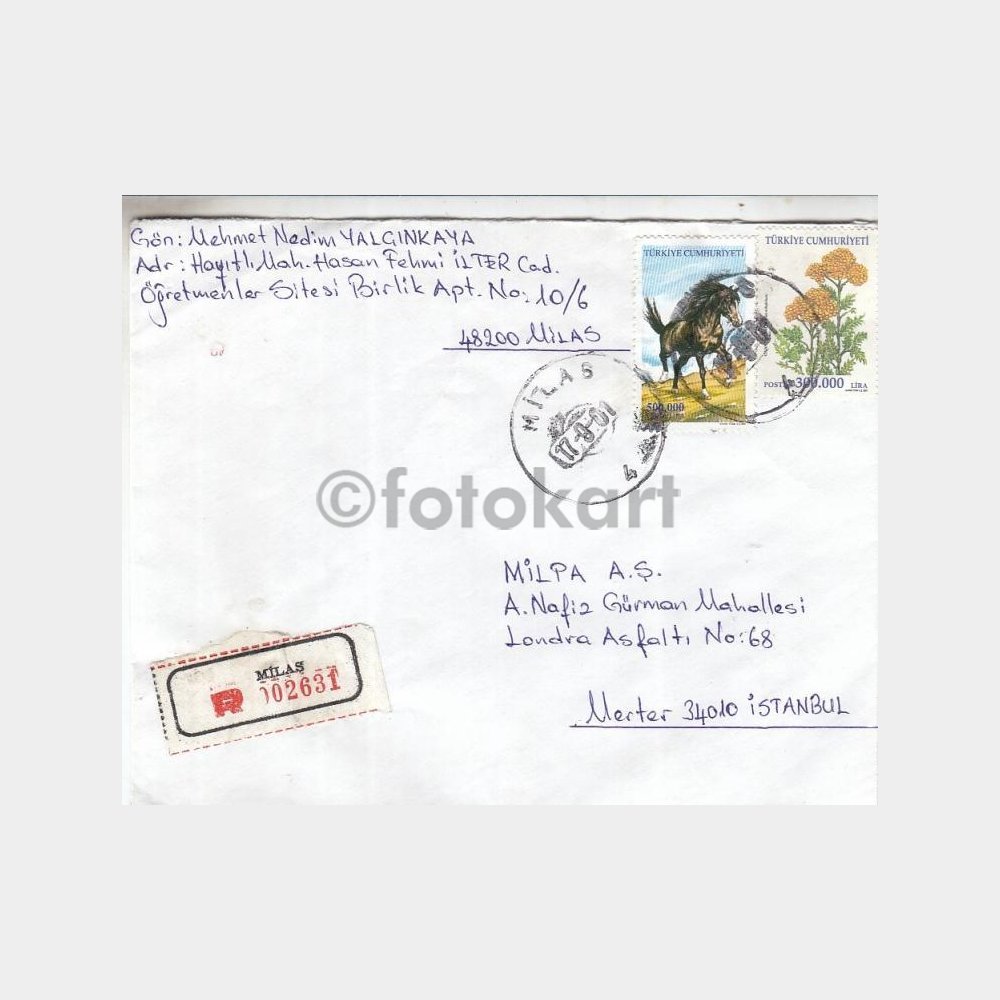 Gön: Mehmet Nedim YALGINKAYA
Adr: Hayıtlı Mah. Hasan Fehmi İLTER Cad.
Öğretmenler Sitesi Birlik Apt. No: 10/6
48200 MİLAS
TÜRKİYE CUMHURİYETİ
500.000
TÜRKİYE CUMHURİYETİ
POSTA 300.000 LİRA
MİLAS
4
©fotokart
MİLPA A.Ş.
A. Nafiz Gürman Mahallesi
Londra Asfaltı No: 68
Merter 34010 İSTANBUL
MİLAS
R 002631